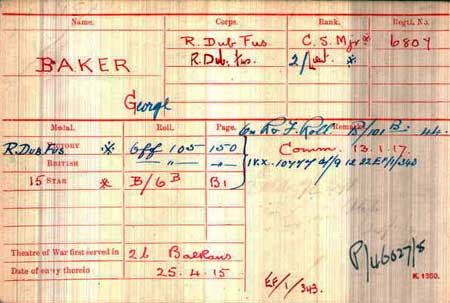 Name. Corps. Rank. Regtl. No.
BAKER R. Dub Fus C. S. Mjr * 6807
R. Dub. Fus. 2/Lieut. *
George
Medal. Roll. Page. Remarks
On R. F. Roll B/101 B
R. Dub Fus VICTORY * Off 105 150 Comm. 13.1.17.
BRITISH — " — — " — IV.X. 10777 12.22 EF/1/343
15 STAR * B/6B B1
Theatre of War first served in 2b Balkans
Date of entry therein 25.4.15
EF/1/343.
P/46027/8
K. 1380.